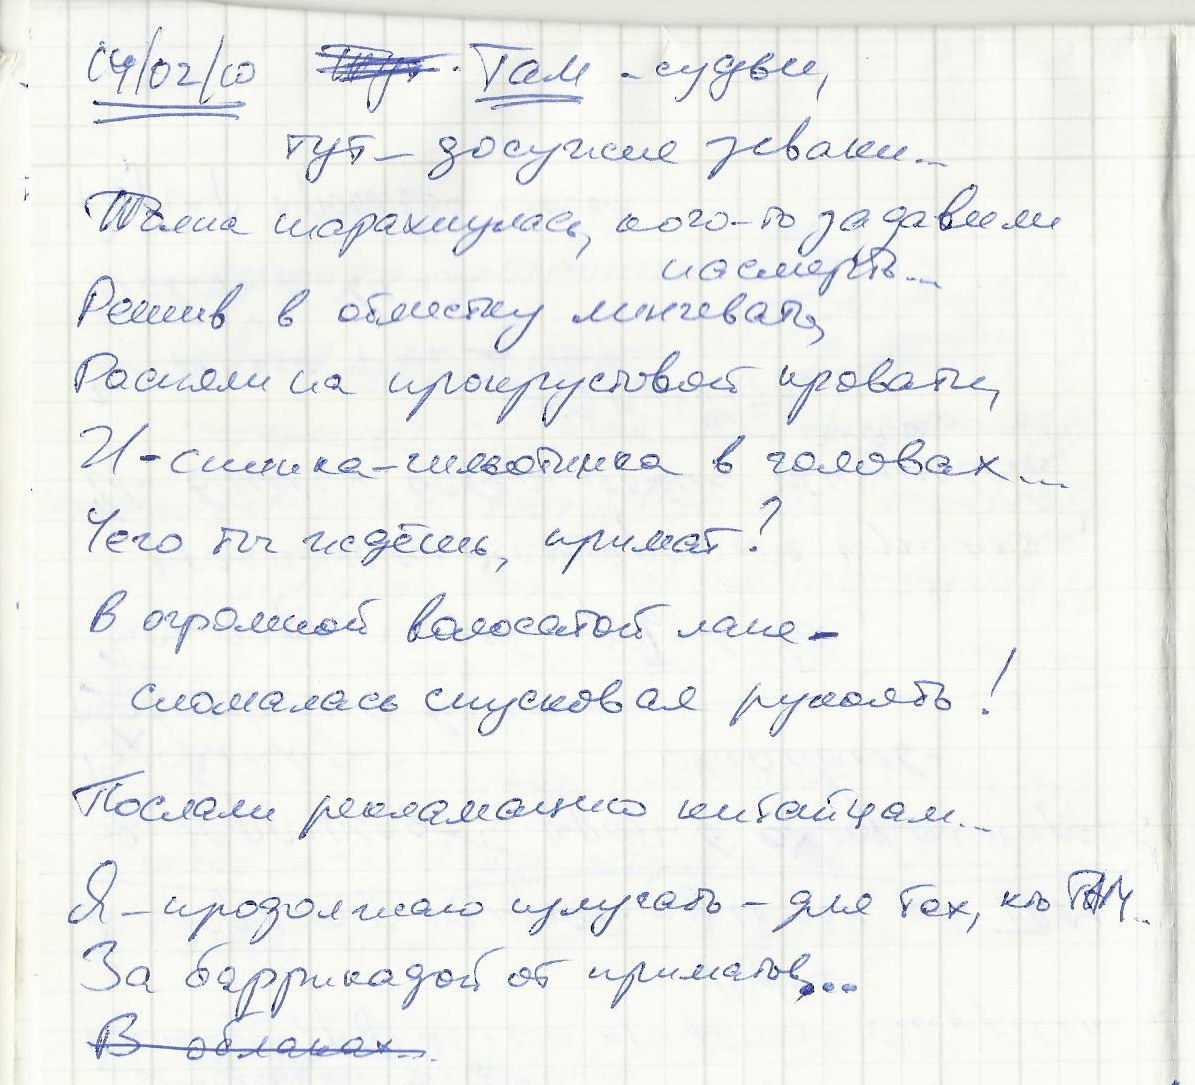 04/02/10 Там - судьи,
тут - досужие зеваки...
Толпа шарахнулась, кого-то задавили
насмерть...
Решив в отместку линчевать,
Распяли на прокрустовой кровати,
И - синика-гильотинка в головах...
Чего ты ждёшь, примат?
В огромной волосатой лапе -
сломалась спусковая рукоять!
Послали рекламацию китайцам...
Я - продолжаю излучать - для тех, кто ТАМ...
За баррикадой от приматов,...
В облаках...